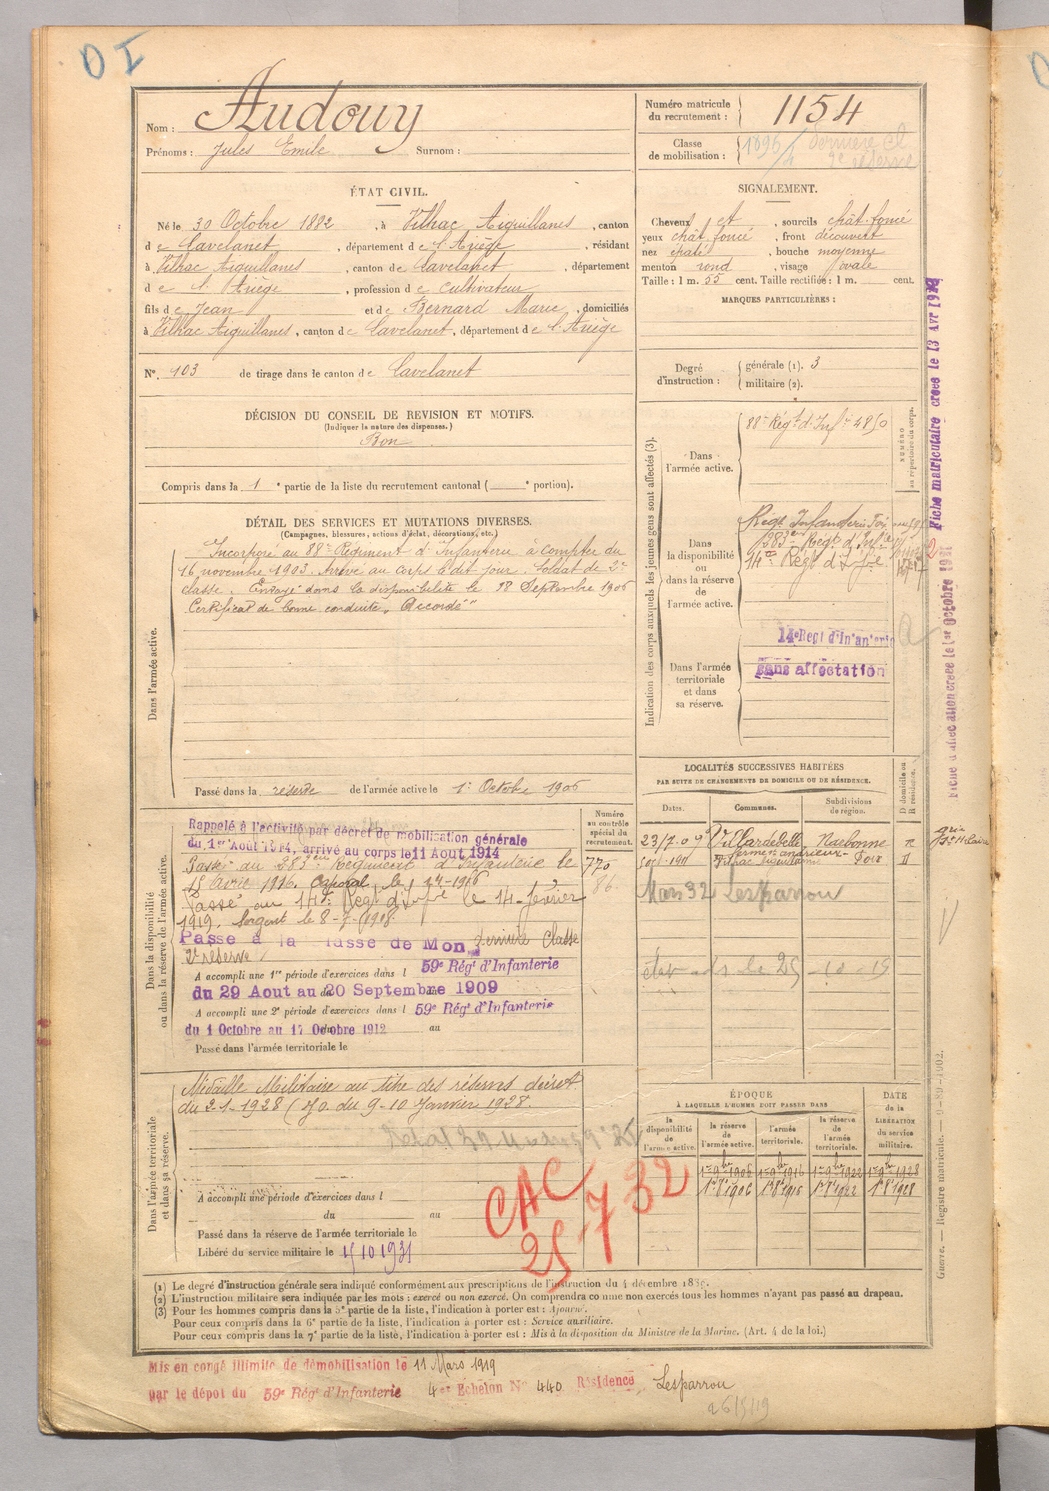 Nom : Audouy
Prénoms : Jules Emile Surnom :
Numéro matricule du recrutement : 1154
Classe de mobilisation : 1896 dernière cl 2e réserve
ÉTAT CIVIL.
Né le 30 Octobre 1882, à Vilhac Aiguillanes, canton
de Lavelanet, département de l'Ariège, résidant
à Vilhac Aiguillanes, canton de Lavelanet, département
de l'Ariège, profession de cultivateur
fils de Jean et de Bernard Marie, domiciliés
à Vilhac Aiguillanes, canton de Lavelanet, département de l'Ariège
SIGNALEMENT.
Cheveux et, sourcils chât. foncé
yeux chât. foncé, front découvert
nez épaté, bouche moyenne
menton rond, visage ovale
Taille : 1 m. 55 cent. Taille rectifiée : 1 m. cent.
MARQUES PARTICULIÈRES :
N°. 103 de tirage dans le canton de Lavelanet
Degré d'instruction : générale (1). 3
militaire (2).
DÉCISION DU CONSEIL DE REVISION ET MOTIFS.
(Indiquer la nature des dispenses.)
Bon
Compris dans la 1e partie de la liste du recrutement cantonal ( e portion).
Indication des corps auxquels les jeunes gens sont affectés (3).
NUMÉRO au répertoire du corps.
Dans l'armée active.
88e Régt d'Infie 4850
Dans la disponibilité ou dans la réserve de l'armée active.
Régt Infanterie Foix
283e Régt d'Infie
14e Régt d'Infie
Dans l'armée territoriale et dans sa réserve.
14e Regt d'Infanterie
sans affectation
DÉTAIL DES SERVICES ET MUTATIONS DIVERSES.
(Campagnes, blessures, actions d'éclat, décorations, etc.)
Dans l'armée active.
Incorporé au 88e Régiment d'Infanterie à compter du
16 novembre 1903. Arrivé au corps à dit jour. Soldat de 2e
classe. Envoyé dans la disponibilité le 18 Septembre 1906
Certificat de bonne conduite "Accordé"
Passé dans la réserve de l'armée active le 1er Octobre 1906
LOCALITÉS SUCCESSIVES HABITÉES
PAR SUITE DE CHANGEMENTS DE DOMICILE OU DE RÉSIDENCE.
Dates. Communes. Subdivisions de région. D domicile ou R résidence.
23/7.09 Villardebelle Narbonne R
Foix
Mars 32 Lesparrou
Dans la disponibilité ou dans la réserve de l'armée active.
Numéro au contrôle spécial du recrutement.
770
86.
Rappelé à l'activité par décret de mobilisation générale
du 1er Août 1914, arrivé au corps le 11 Août 1914
Passé au 283ème Régiment d'Infanterie le
18 Avril 1916. Caporal le
Passé au 14e Régt d'Infie le 14 février
1919. Sergent le 8-7-1918
Passe à la classe de Mon dernière Classe
2e réserve
A accompli une 1re période d'exercices dans l 59e Régt d'Infanterie
du 29 Aout au 20 Septembre 1909
A accompli une 2e période d'exercices dans l 59e Régt d'Infanterie
du 1 Octobre au 17 Octobre 1912 au
Passé dans l'armée territoriale le
Dans l'armée territoriale et dans sa réserve.
Médaille Militaire au titre des réserves décret
du 2-1-1928 (J.O. du 9-10 Janvier 1928.
CAC
25-7 32
A accompli une période d'exercices dans l
du au
Passé dans la réserve de l'armée territoriale le
Libéré du service militaire le 15 10 1931
ÉPOQUE
À LAQUELLE L'HOMME DOIT PASSER DANS
la disponibilité de l'armée active. la réserve de l'armée active. l'armée territoriale. la réserve de l'armée territoriale.
DATE de la LIBÉRATION du service militaire.
1er 9bre 1906 1er 9bre 1916 1er 9bre 1922 1er 9bre 1928
1er 8e 1906 1er 8e 1916 1er 8e 1922 1er 8e 1928
(1) Le degré d'instruction générale sera indiqué conformément aux prescriptions de l'instruction du 4 décembre 1889.
(2) L'instruction militaire sera indiquée par les mots : exercé ou non exercé. On comprendra comme non exercés tous les hommes n'ayant pas passé au drapeau.
(3) Pour les hommes compris dans la 5e partie de la liste, l'indication à porter est : Ajourné.
Pour ceux compris dans la 6e partie de la liste, l'indication à porter est : Service auxiliaire.
Pour ceux compris dans la 7e partie de la liste, l'indication à porter est : Mis à la disposition du Ministre de la Marine. (Art. 4 de la loi.)
Mis en congé illimité de démobilisation le 11 Mars 1919
par le dépôt du 59e Rég' d'Infanterie 4e Echelon N° 440 Résidence Lesparrou
Guerre. — Registre matricule.
Fiche matriculaire créée le 13 Avr